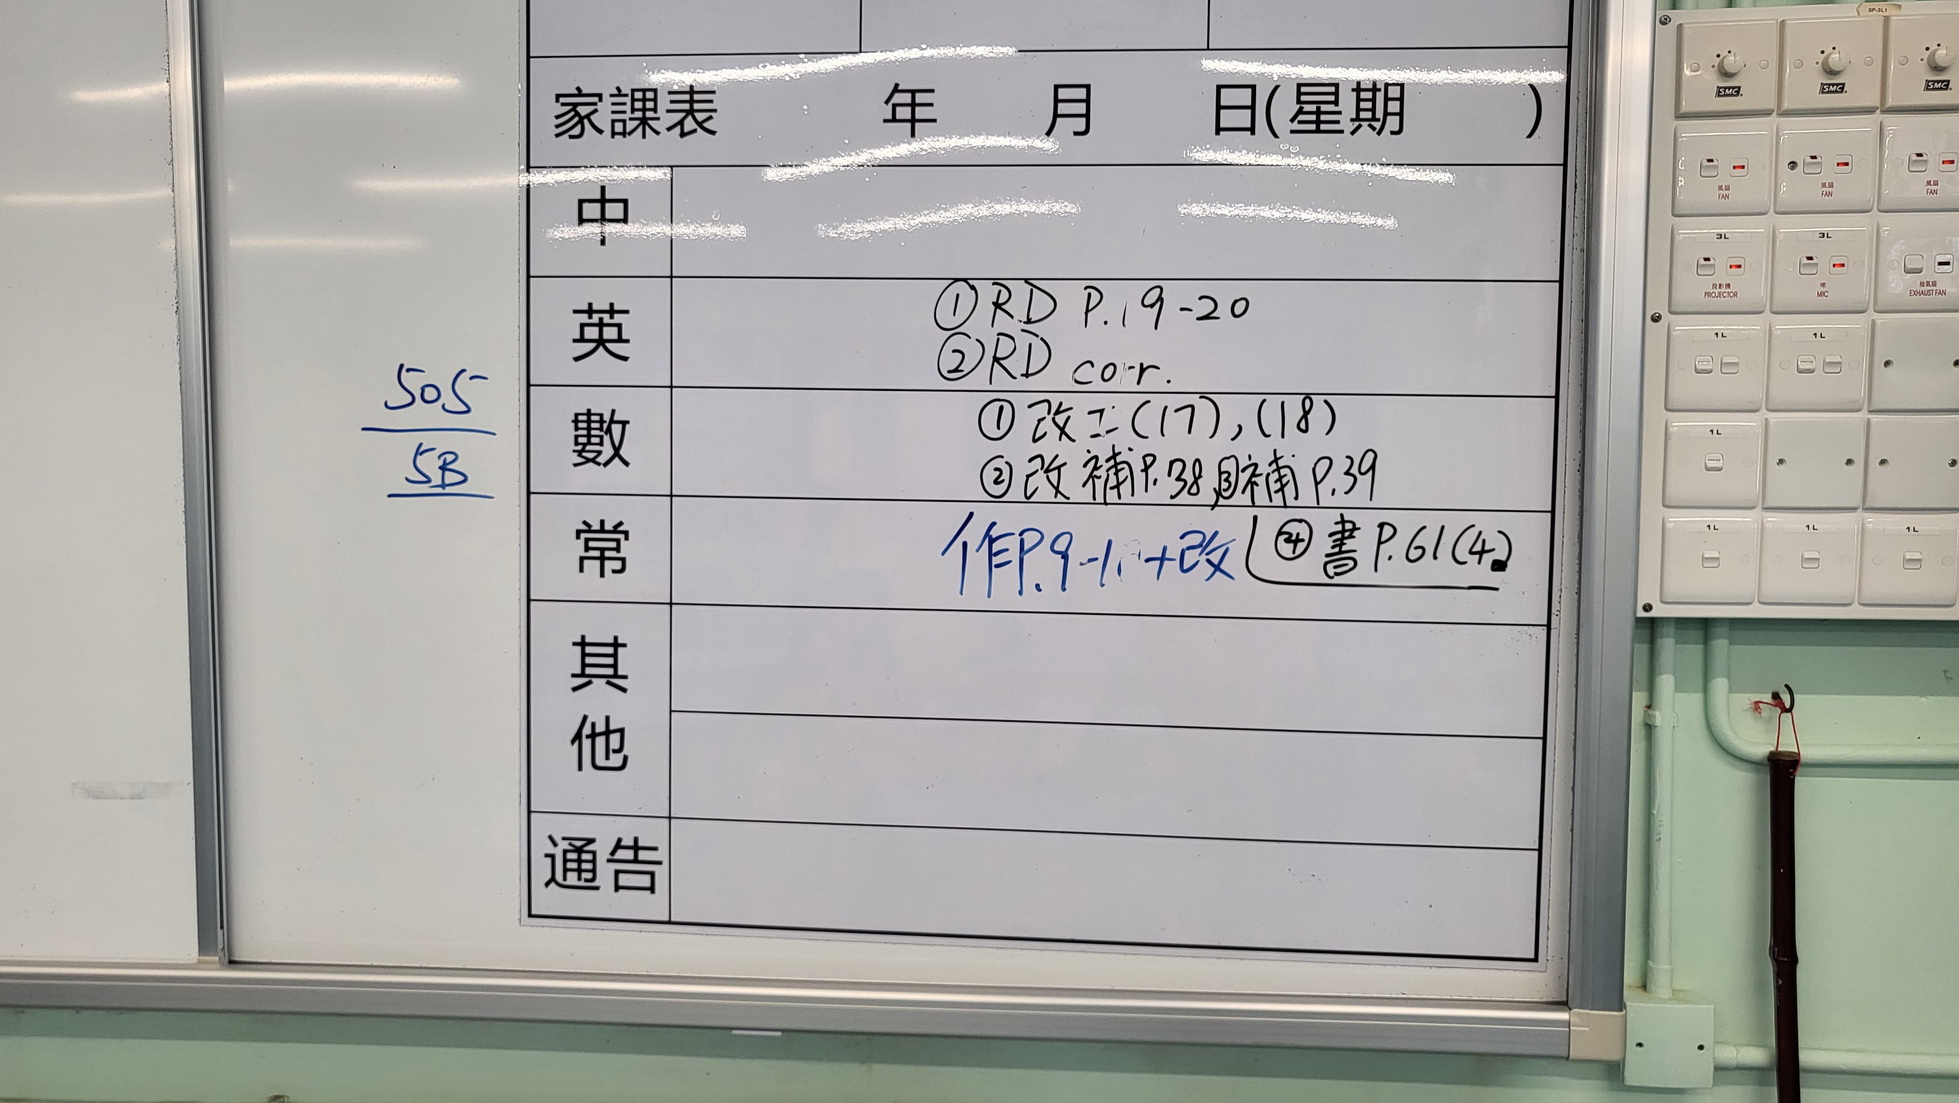 家課表 年 月 日(星期 )
中
英
①RD P.19-20
②RD corr.
數
①改工(17),(18)
②改補P.38,③補P.39
常
作P.9-1 +改
④書P.61(4)
其他
通告
505
5B
SP-3L1
SMC SMC SMC
風扇 風扇 風扇
FAN FAN FAN
3L 3L
投影機 咪 抽氣扇
PROJECTOR MIC EXHAUST FAN
1L 1L
1L
1L 1L 1L